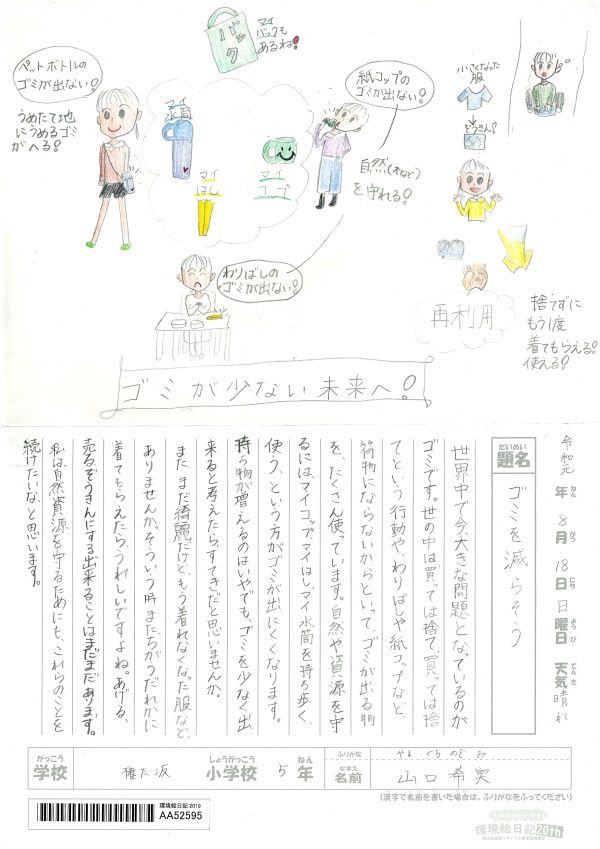 ペットボトルの
ゴミが出ない!
うめたて地
にうめるゴミ
がへる!
バック
マイ
バックも
あるね!
マイ
水筒
マイ
はし
マイ
コップ
紙コップの
ゴミが出ない!
自然(木など)
を守れる!
わりばしの
ゴミが出ない!
小さくなった
服
ぞうきん!
再利用
捨てずに
もう1度
着てもらえる!
使える!
ゴミが少ない未来へ!
令和元年 8月 18日 日曜日 天気 晴れ
ねん がつ にち ようび てんき
だいめい
題名 ゴミを減らそう
世界中で今大きな問題となっているのが
ゴミです。世の中は買っては捨て、買っては捨
てという行動や、わりばしや紙コップなど、
荷物にならないからといって、ゴミが出る物
を、たくさん使っています。自然や資源を守
るには、マイコップ、マイはし、マイ水筒を持ち歩く、
使う、という方がゴミが出にくくなります。
持つ物が増えるのはいやでも、ゴミを少なく出
来ると考えたら、すてきだと思いませんか。
また、まだ綺麗だけど、もう着れなくなった服など、
ありませんか。そういう時、またちがうだれかに
着てもらえたらうれしいですよね。あげる、
売る、ぞうきんにする、出来ることはまだまだあります。
私は、自然、資源を守るためにも、これらのことを
続けたいな、と思います。
がっこう しょうがっこう ねん
学校 権太坂 小学校 5年
ふりがな やまぐちのぞみ
なまえ
名前 山口希実
(漢字で名前を書いた場合は、ふりがなをふってください)
環境絵日記 2019
AA52595
環境絵日記20th